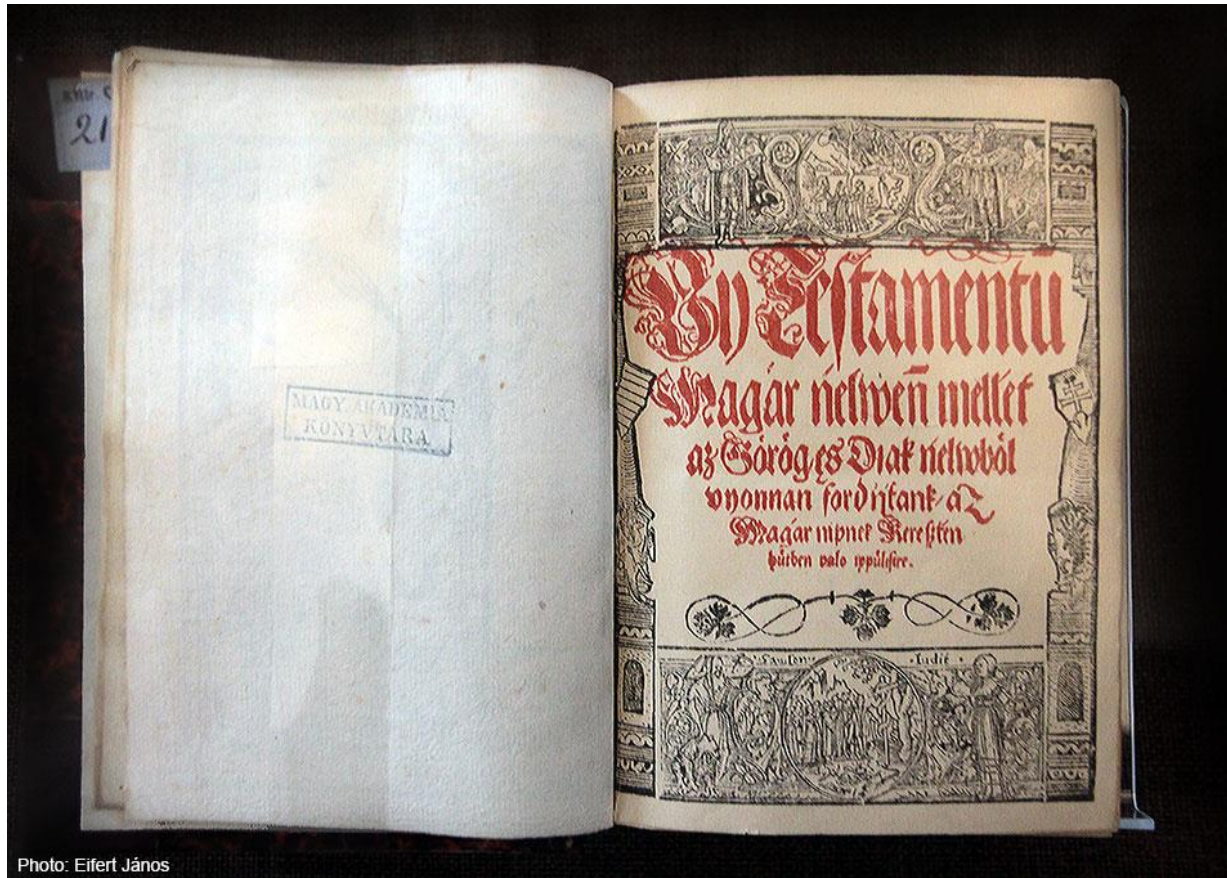 21
MAGY. AKADEMIA
KÖNYVTÁRA
Vy Testamentū
Magár nelweñ mellet
az Görög es Diak nelwböl
vyonnan fordijtank, az
Magár nipnek Kereßtén
hütben valo ippülisire.
Iudit
Photo: Eifert János